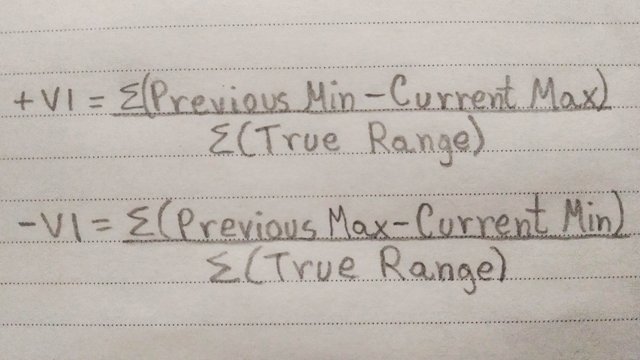 +VI = Σ(Previous Min - Current Max)
Σ(True Range)
-VI = Σ(Previous Max - Current Min)
Σ(True Range)